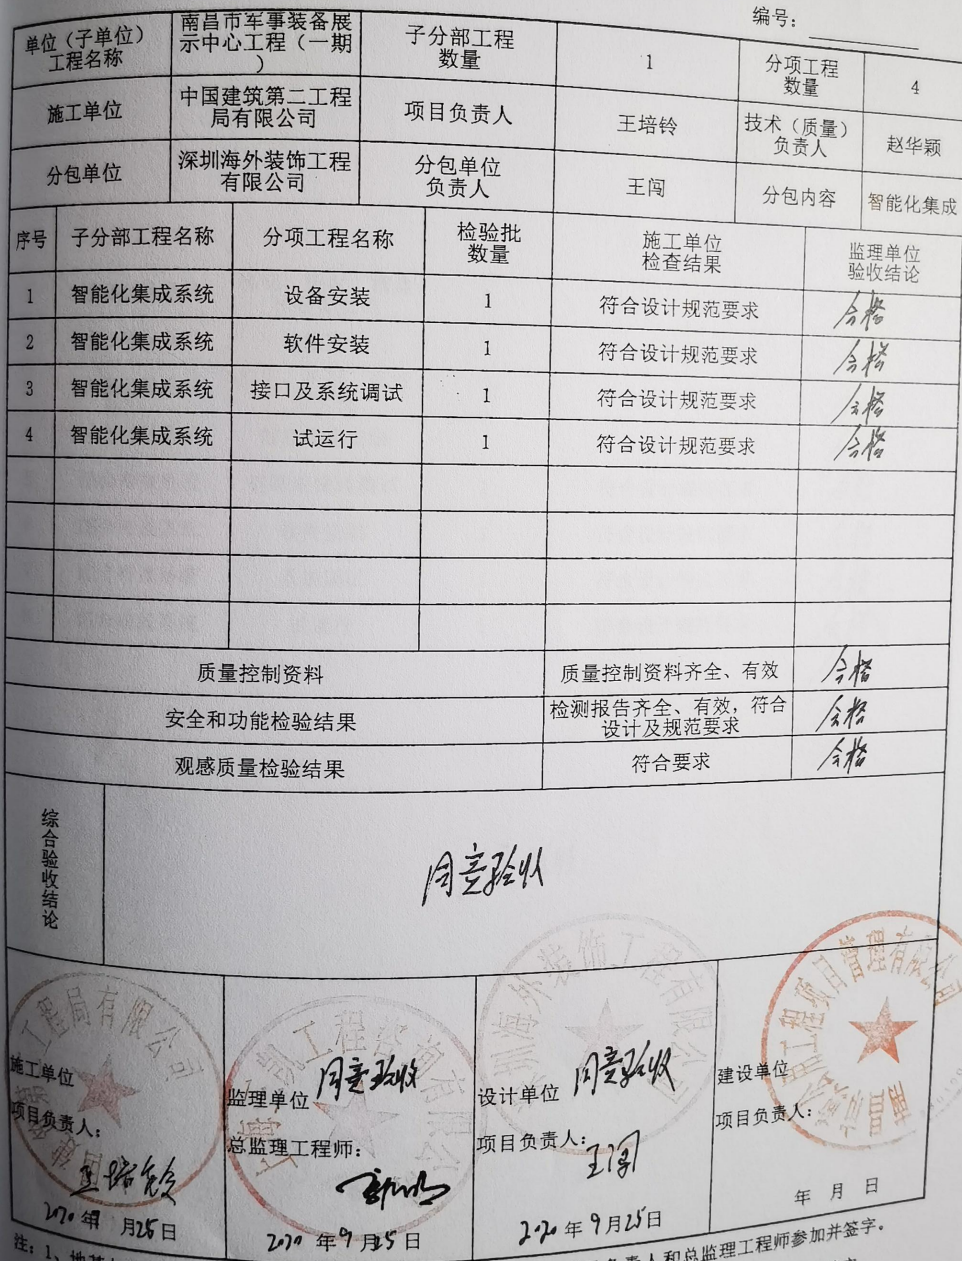 编号：
单位（子单位）工程名称 南昌市军事装备展示中心工程（一期） 子分部工程数量 1 分项工程数量 4
施工单位 中国建筑第二工程局有限公司 项目负责人 王培铃 技术（质量）负责人 赵华颖
分包单位 深圳海外装饰工程有限公司 分包单位负责人 王闯 分包内容 智能化集成
序号 子分部工程名称 分项工程名称 检验批数量 施工单位检查结果 监理单位验收结论
1 智能化集成系统 设备安装 1 符合设计规范要求 合格
2 智能化集成系统 软件安装 1 符合设计规范要求 合格
3 智能化集成系统 接口及系统调试 1 符合设计规范要求 合格
4 智能化集成系统 试运行 1 符合设计规范要求 合格
质量控制资料 质量控制资料齐全、有效 合格
安全和功能检验结果 检测报告齐全、有效，符合设计及规范要求 合格
观感质量检验结果 符合要求 合格
综合验收结论 同意验收
施工单位
项目负责人：
王培铃
2020年 月25日
监理单位 同意验收
总监理工程师：
2020年9月25日
设计单位 同意验收
项目负责人：
王闯
2020年9月25日
建设单位
项目负责人：
年 月 日
工程局有限公司
工程咨询有限公
圳海外装饰工程有限公司
工程项目管理有限公司
注：1、
负责人和总监理工程师参加并签字。